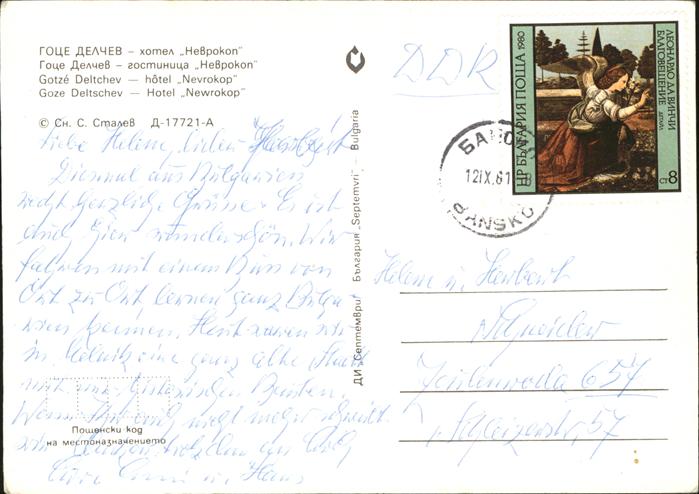 ГОЦЕ ДЕЛЧЕВ – хотел „Неврокоп"
Гоце Делчев – гостиница „Неврокоп"
Gotzé Deltchev — hôtel „Nevrokop"
Goze Deltschev — Hotel „Newrokop"
© Сн. С. Сталев Д-17721-А
Liebe Helene, lieber Herbert
Diesmal aus Bulgarien
recht herzliche Grüsse. Es ist
auch hier wunderschön. Wir
fahren mit einem Bus von
Ort zu Ort lernen ganz Bulga-
rien kennen. Heut waren wir
in Melnik eine ganz alte Stadt
mit historischen Bauten.
Wenn Ihr nicht mehr schreibt
trotzdem
Hans
Пощенски код
на местоназначението
ДИ „Септември" България „Septemvri" – Bulgaria
DDR
БЪЛГАРИЯ ПОЩА 1980
ЛЕОНАРДО ДА ВИНЧИ
БЛАГОВЕЩЕНИЕ ДЕТАЙЛ
СТ 8
12IX.81
BANSKO
Helene u. Herbert
Schneider
Zeulenroda 657
Schleizerstr. 57